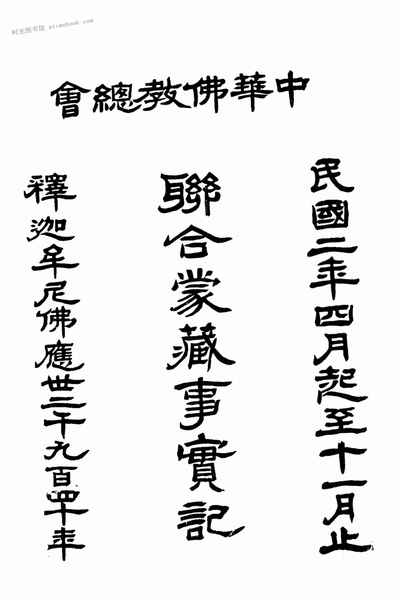 时光图书馆 stimebook.com
中華佛教總會
民國二年四月起至十一月止
聯合蒙藏事實記
釋迦牟尼佛應世二千九百四十年